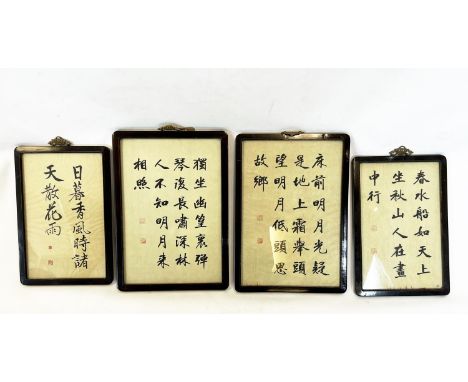 日暮香風時諸
天散花雨
獨坐幽篁裏彈
琴復長嘯深林
人不知明月来
相照
床前明月光疑
是地上霜舉頭
望明月低頭思
故鄉
春水船如天上
坐秋山人在畫
中行